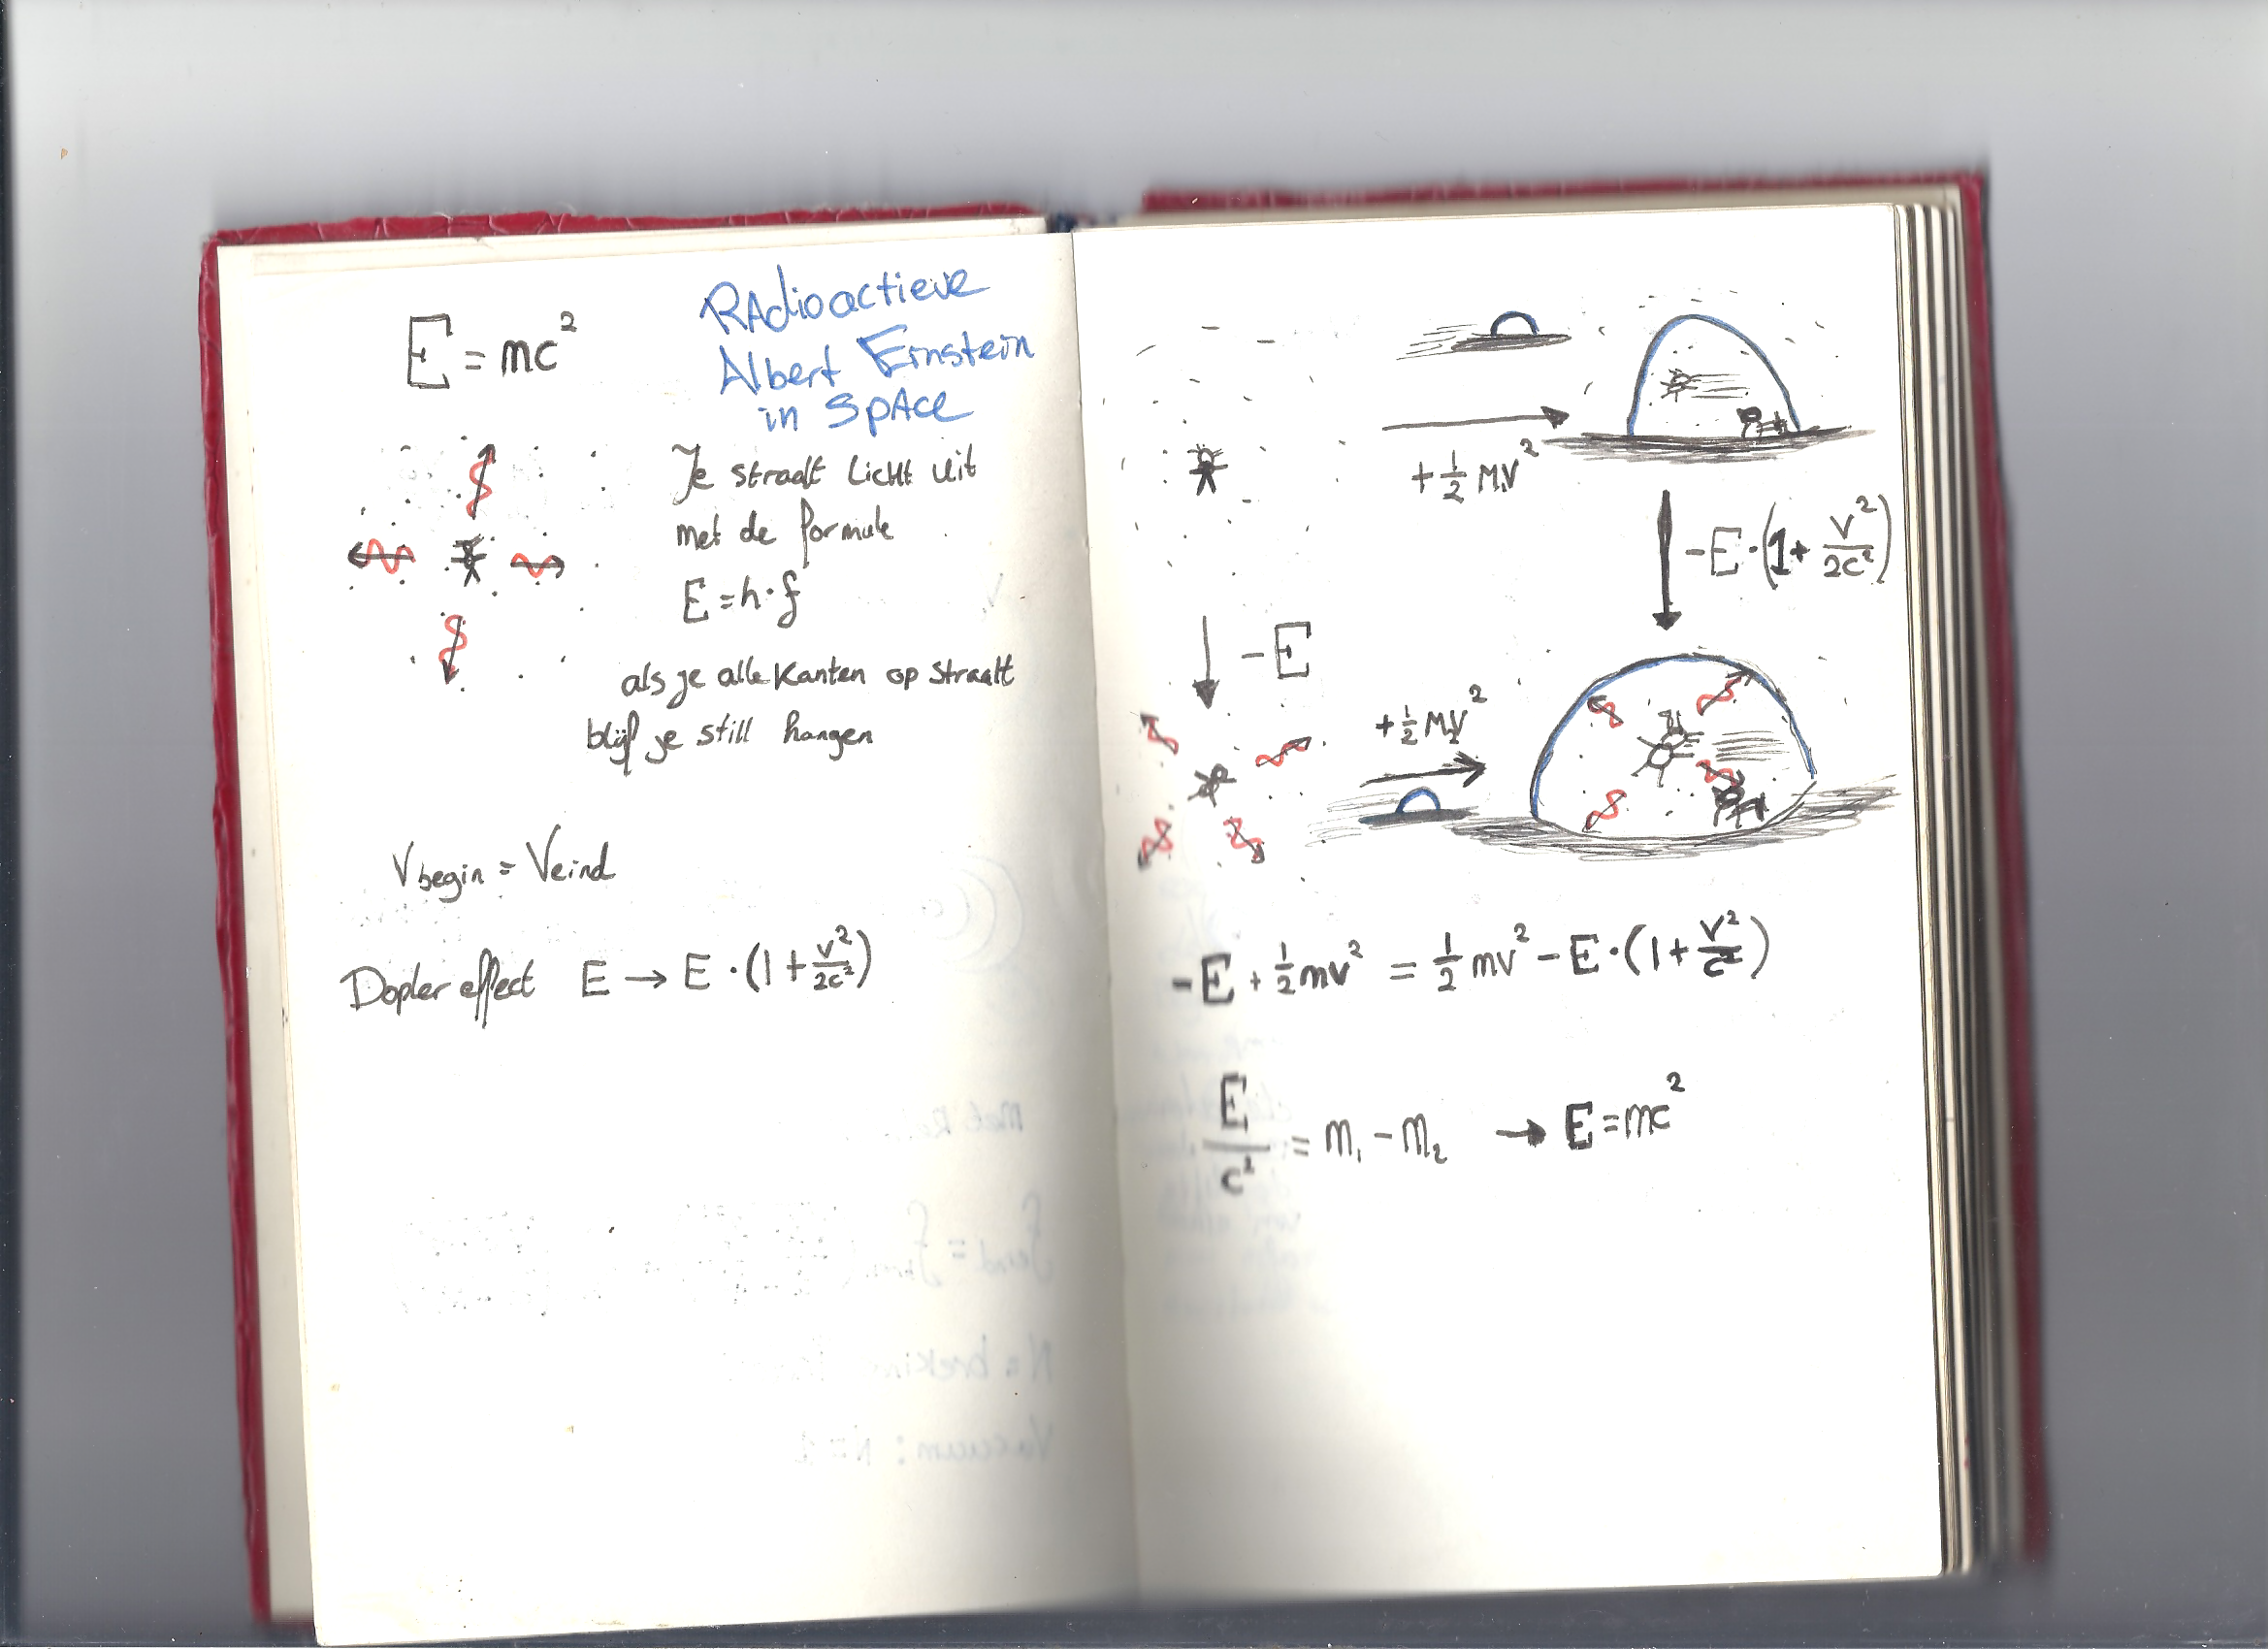 E = mc²
RAdioactieve
Albert Einstein
in SpAce
Je straalt Licht uit
met de formule
E = h·f
als je alle Kanten op straalt
blijf je still hangen
Vbegin = Veind
Dopler effect E → E·(1+v²/2c²)
+½M₁V²
-E·(1+v²/2c²)
-E
+½M₂V²
-E + ½mv² = ½mv² - E·(1+v²/c²)
E/c² = m₁ - m₂ → E = mc²